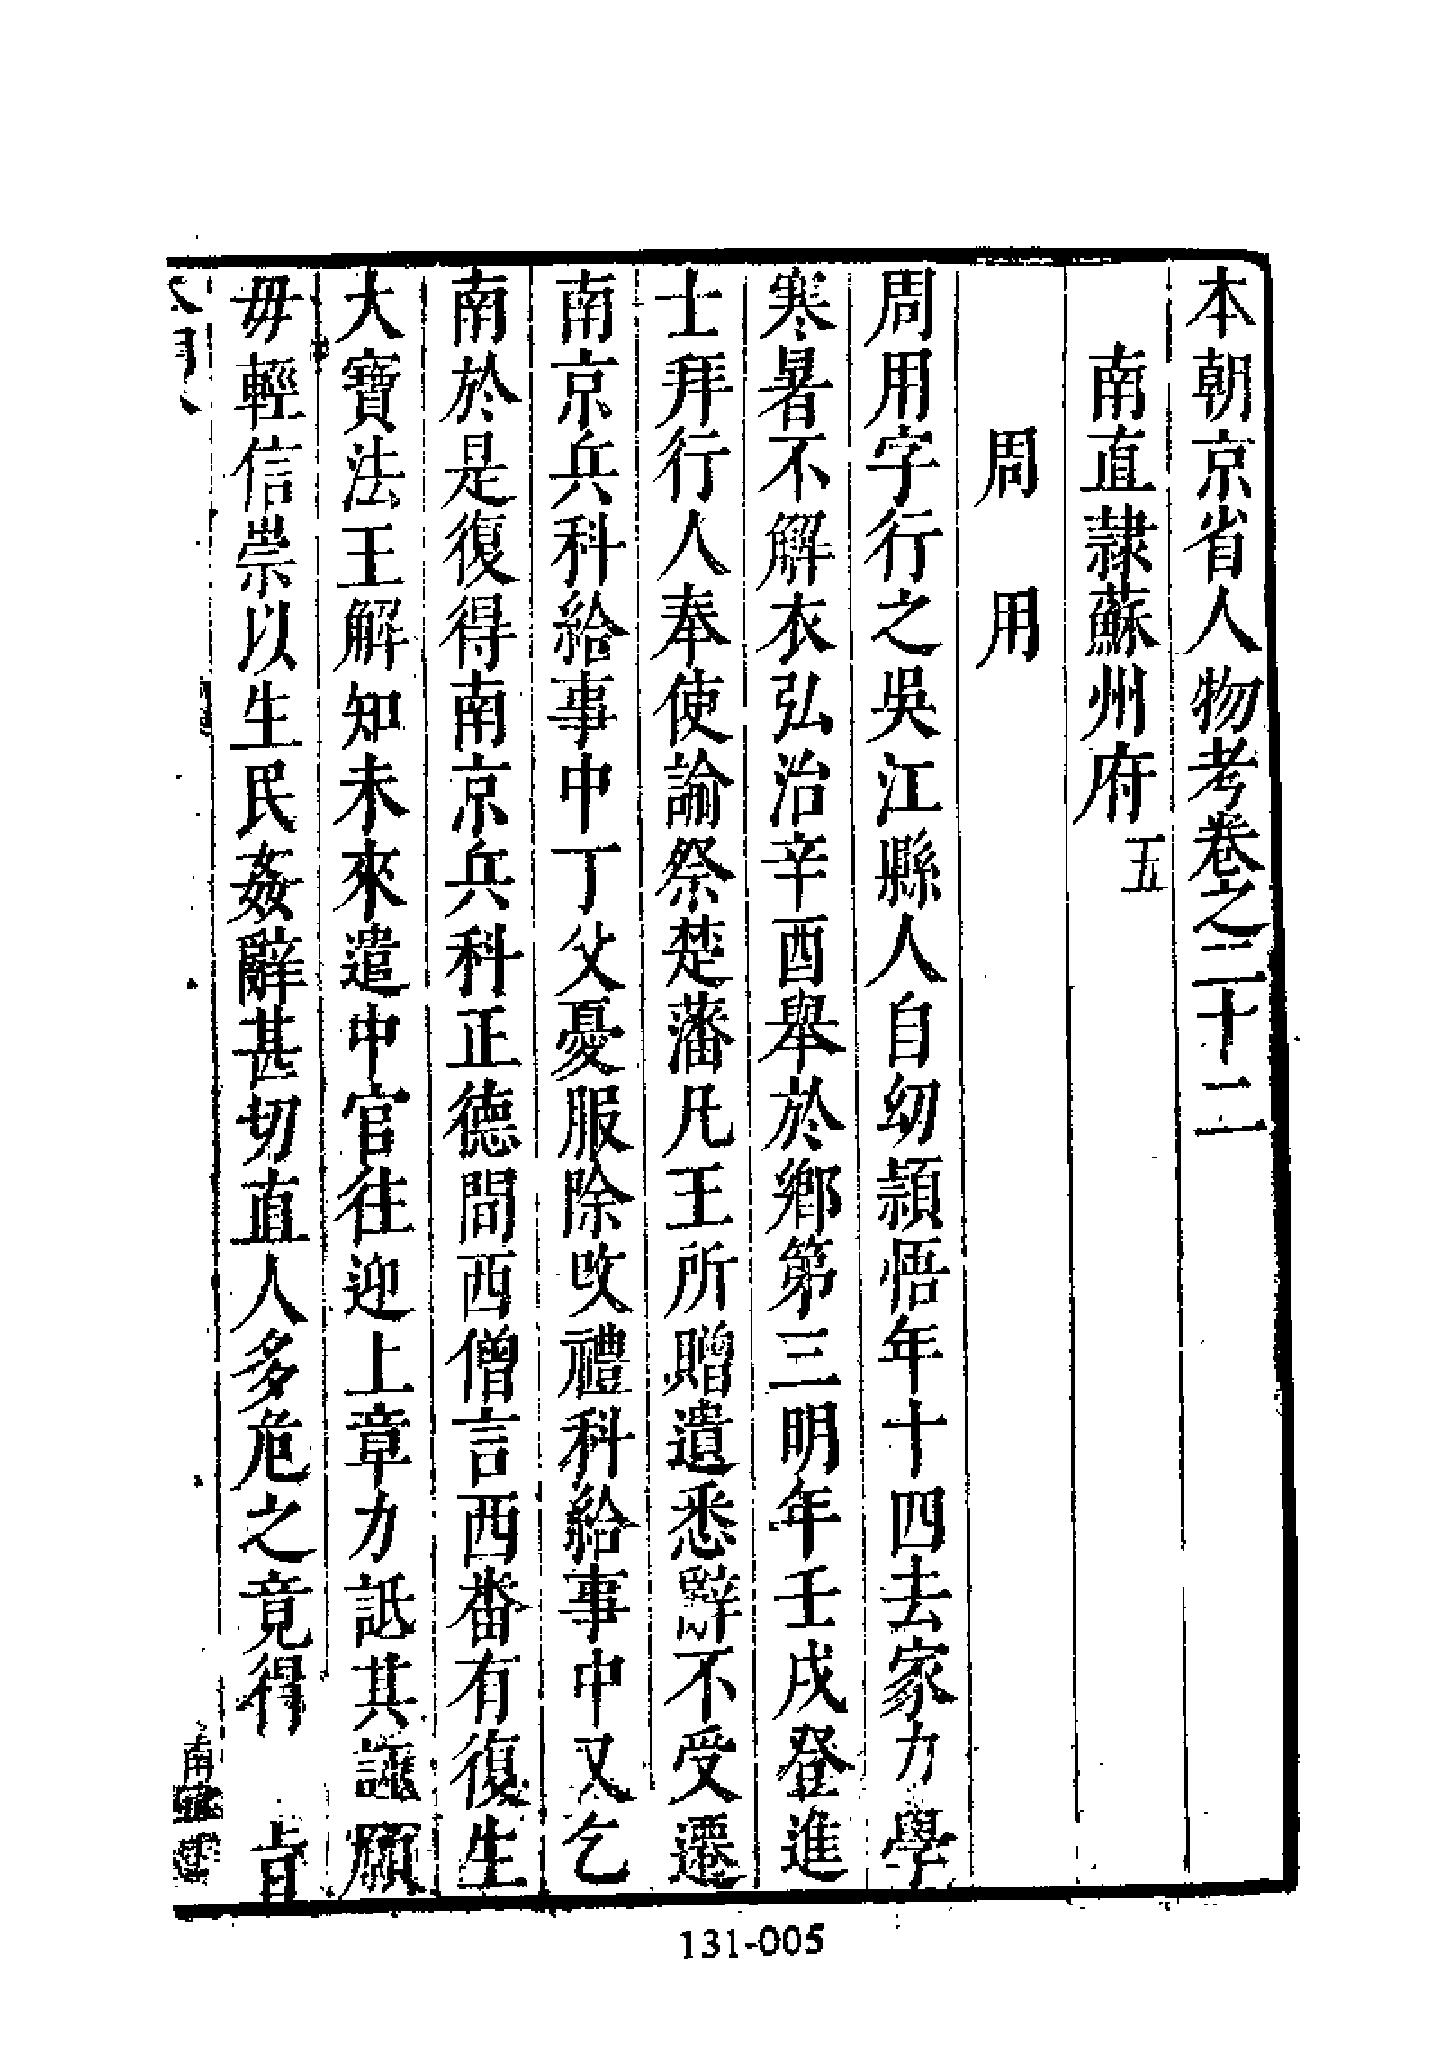 本朝京省人物考卷之二十二
南直隷蘇州府五
周用
周用字行之吳江縣人自幼頴悟年十四去家力學
寒暑不解衣弘治辛酉舉於鄉第三明年壬戌登進
士拜行人奉使諭祭楚藩凡王所贈遺悉辭不受遷
南京兵科給事中丁父憂服除改禮科給事中又乞
南於是復得南京兵科正德間西僧言西番有復生
大寶法王解知未來遣中官往迎上章力詆其謬願
毋輕信崇以生民姦辭甚切直人多危之竟得 旨
131-005